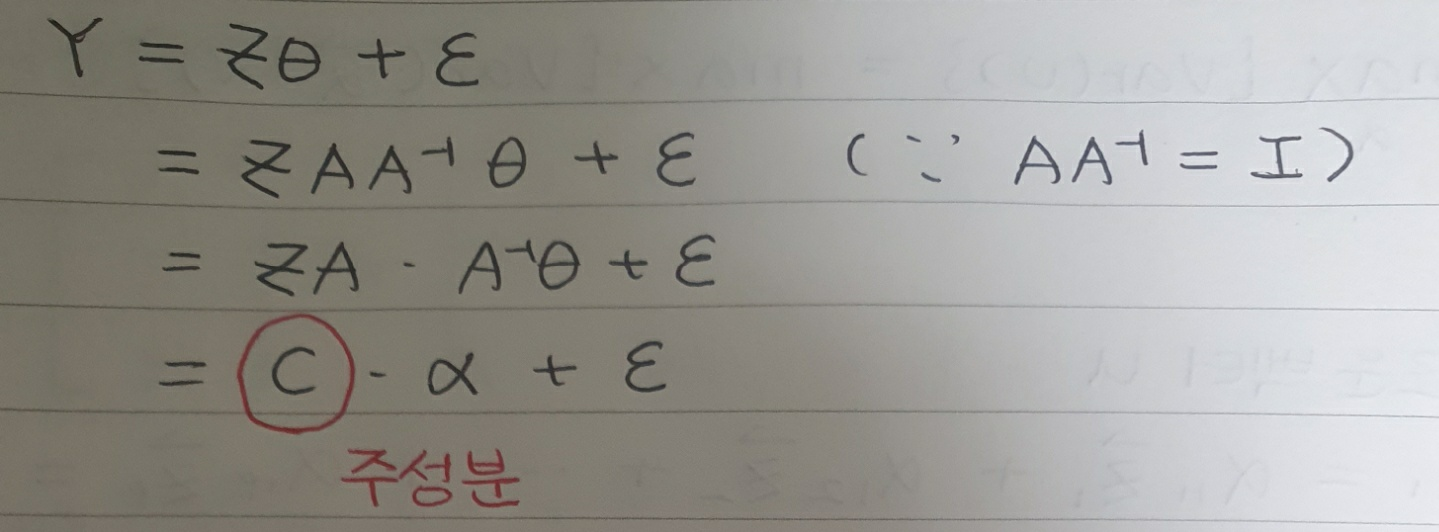 Y = Zθ + ε
= ZAA⁻¹θ + ε (∵ AA⁻¹ = I)
= ZA · A⁻¹θ + ε
= C · α + ε
주성분